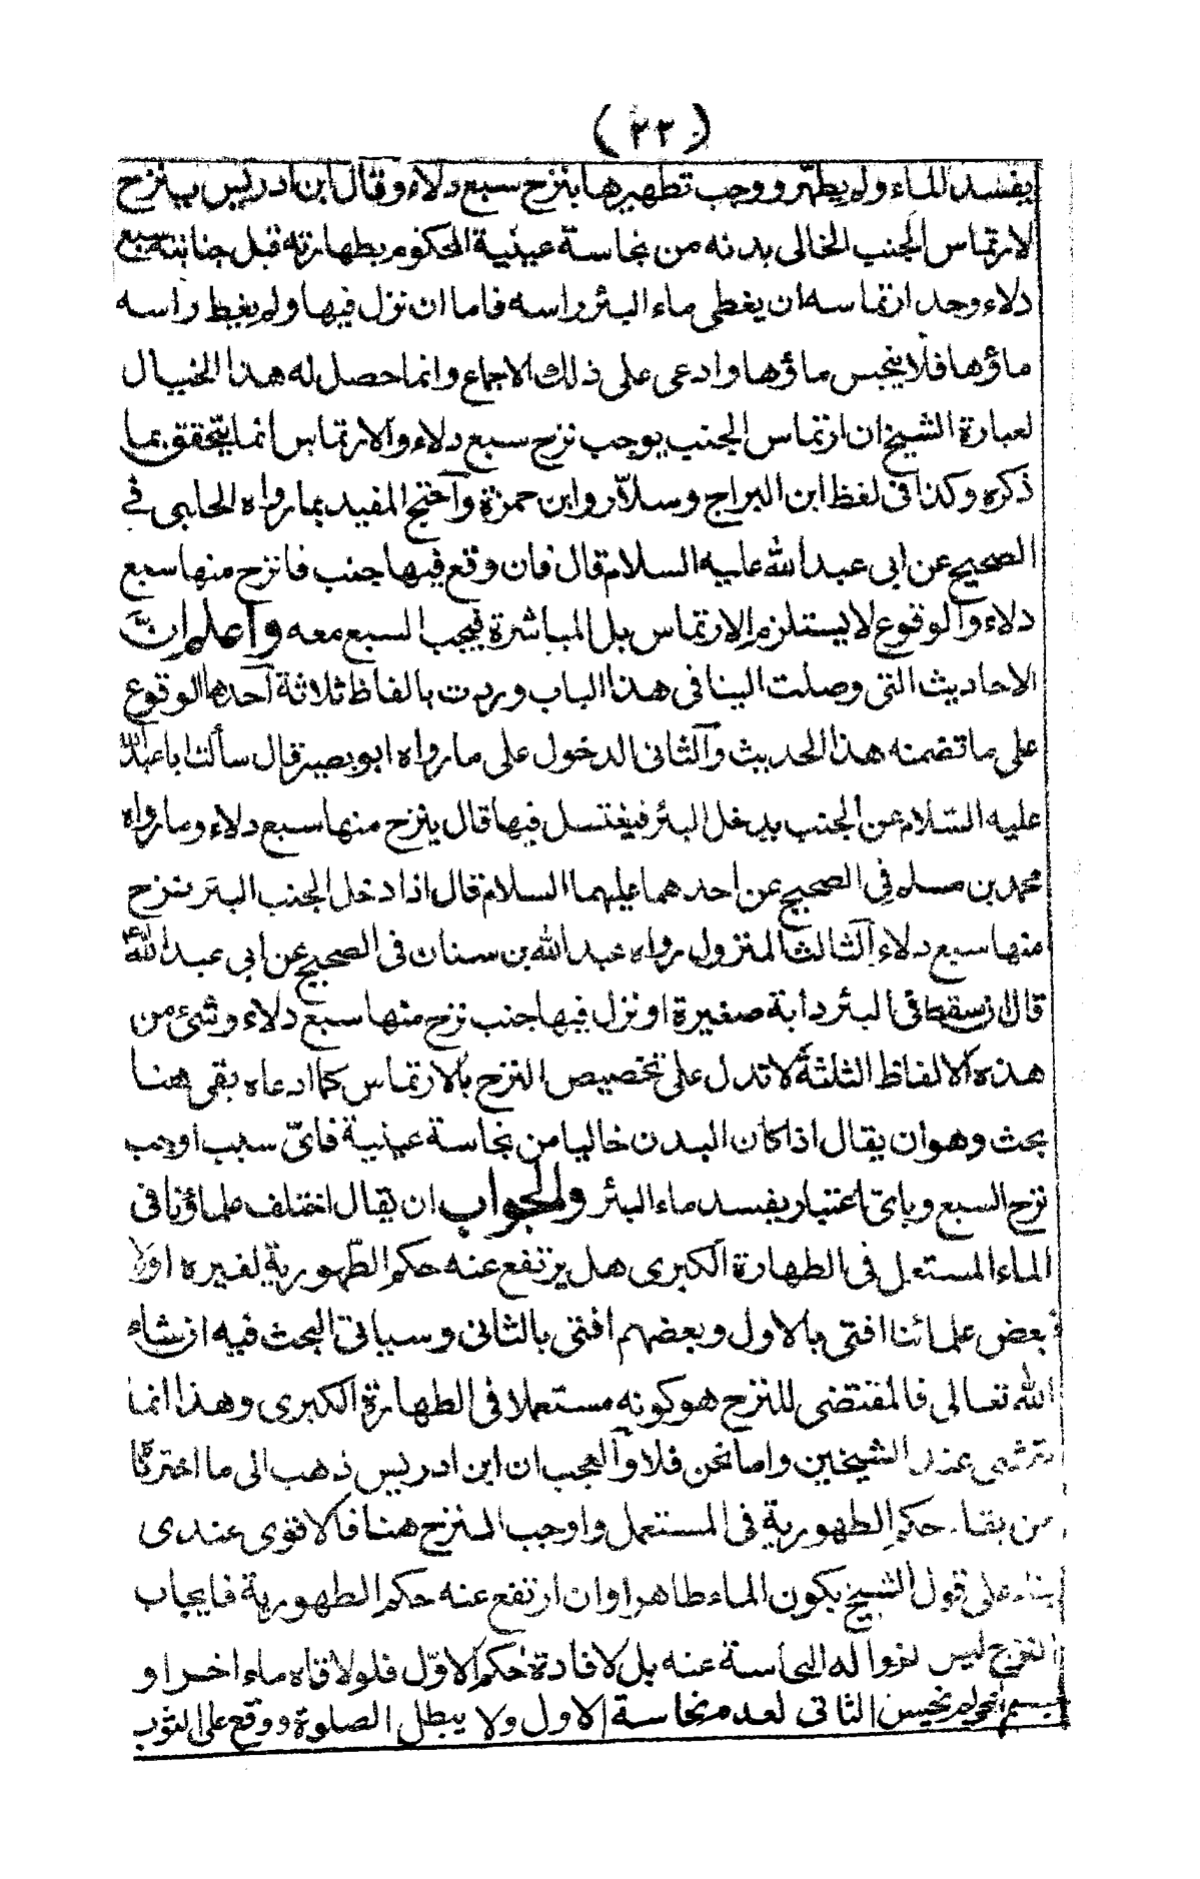 (٢٣)
يفسد الماء ولم يطهر ووجب تطهيرها بنزح سبع دلاء وقال ابن ادريس ينزح
لارتماس الجنب الخالى بدنه من نجاسة عينية المحكوم بطهارته قبل جنابته سبع
دلاء وحد ارتماسه ان يغطى ماء البئر راسه فاما ان نزل فيها ولم يغط راسه
ماؤها فلا ينجس ماؤها وادعى على ذلك الاجماع وانما حصل له هذا الخيال
لعبارة الشيخ ان ارتماس الجنب يوجب نزح سبع دلاء والارتماس انما يتحقق بما
ذكره وكذا فى لفظ ابن البراج وسلّار وابن حمزة وآحتج المفيد بما رواه الحلبى فى
الصحيح عن ابى عبد الله عليه السلام قال فان وقع فيها جنب فانزح منها سبع
دلاء وآلوقوع لا يستلزم الارتماس بل المباشرة فيجب السبع معه وآعلم انّ
الاحاديث التى وصلت الينا فى هذا الباب وردت بالفاظ ثلاثة آحدها الوقوع
على ما تضمنه هذا الحديث وآلثانى الدخول على ما رواه ابو بصير قال سألت ابا عبد الله
عليه السّلام عن الجنب يدخل البئر فيغتسل فيها قال ينزح منها سبع دلاء وما رواه
محمد بن مسلم فى الصحيح عن احدهما عليهما السلام قال اذا دخل الجنب البئر نزح
منها سبع دلاء آلثالث المنزول رواه عبد الله بن سنان فى الصحيح عن ابى عبد الله
قال ان سقط فى البئر دابة صغيرة او نزل فيها جنب نزح منها سبع دلاء وشئ من
هذه الالفاظ الثلثة لا تدل على تخصيص النزح بالارتماس كما ادعاه بقى هنا
بحث وهو ان يقال اذا كان البدن خاليا من نجاسة عينية فاىّ سبب اوجب
نزح السبع وباىّ اعتبار يفسد ماء البئر والجواب ان يقال اختلف علماؤنا فى
الماء المستعمل فى الطهارة الكبرى هل يرتفع عنه حكم الطّهورية لغيره اولا
فبعض علمائنا افتى بالاول وبعضهم افتى بالثانى وسياتى البحث فيه ان شاء
الله تعالى فالمقتضى للنزح هو كونه مستعملا فى الطهارة الكبرى وهذا انما
يتمشى عند الشيخين واما نحن فلا وآلعجب ان ابن ادريس ذهب الى ما اخترنا
من بقاء حكم الطهورية فى المستعمل واوجب النزح هنا فالاقوى عندى
بناء على قول الشيخ بكون الماء طاهرا وان ارتفع عنه حكم الطهورية فايجاب
النزح ليس لزوا له النجاسة عنه بل لافادة حكم الاوّل فلو لاقاه ماء اخر او
جسم اخر لم نجس الثانى لعدم نجاسة الاول ولا يبطل الصلوة ووقع على الثوب